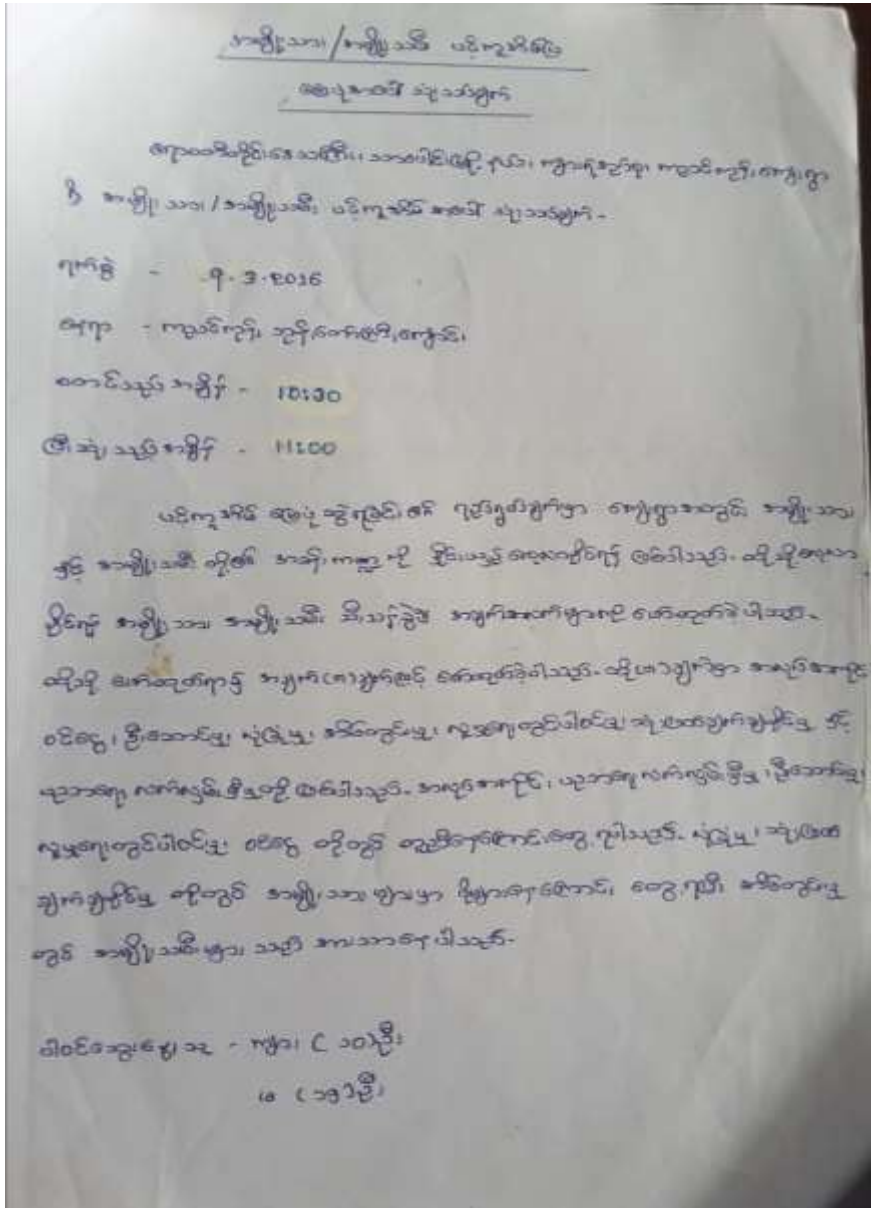 အမျိုးသား/အမျိုးသမီး ပင့်ကူအိမ်ပြ
မြေပုံအပေါ် သုံးသပ်ချက်
ဧရာဝတီတိုင်းဒေသကြီး၊ ကျေးရွာ
ရှိ အမျိုးသား/အမျိုးသမီး ပင့်ကူအိမ် အပေါ် သုံးသပ်ချက် -
ရက်စွဲ - 9.3.2016
နေရာ - ဘုန်းတော်ကြီးကျောင်း
စတင်သည့် အချိန် - 10:30
ပြီးဆုံးသည့် အချိန် - 11:00
ပင့်ကူအိမ် မြေပုံ ဆွဲရခြင်း၏ ရည်ရွယ်ချက်မှာ ကျေးရွာအတွင်း အမျိုးသား
နှင့် အမျိုးသမီး တို့၏ အခန်းကဏ္ဍ ကို နှိုင်းယှဉ် လေ့လာနိုင်ရန် ဖြစ်ပါသည်။ ထိုသို့လေ့လာ
နိုင်ရန် အမျိုးသား၊ အမျိုးသမီး သီးသန့်ခွဲ၍ အချက်အလက်များကို ဖော်ထုတ်ခဲ့ပါသည်။
ထိုသို့ ဖော်ထုတ်ရာ၌ အချက်(၈)ချက်ဖြင့် ဖော်ထုတ်ခဲ့ပါသည်။ ထို(၈)ချက်မှာ အလုပ်အကိုင်
ဝင်ငွေ၊ ဦးဆောင်မှု၊ လုံခြုံမှု၊ အိမ်တွင်းမှု၊ လူမှုရေးတွင်ပါဝင်မှု၊ ဆုံးဖြတ်ချက်ချနိုင်မှု နှင့်
ပညာရေး လက်လှမ်းမှီမှုတို့ ဖြစ်ပါသည်။ အလုပ်အကိုင်၊ ပညာရေး လက်လှမ်းမှီမှု၊ ဦးဆောင်မှု၊
လူမှုရေးတွင်ပါဝင်မှု၊ ဝင်ငွေ တို့တွင် တူညီနေကြောင်း တွေ့ရပါသည်။ လုံခြုံမှု၊ ဆုံးဖြတ်
ချက်ချနိုင်မှု တို့တွင် အမျိုးသား များမှာ ပိုများနေကြောင်း တွေ့ရပြီး အိမ်တွင်းမှု
တွင် အမျိုးသမီးများ သည် အားသာနေပါသည်။
ပါဝင်ဆွေးနွေးသူ - ကျား (၁၀)ဦး
မ ဦး